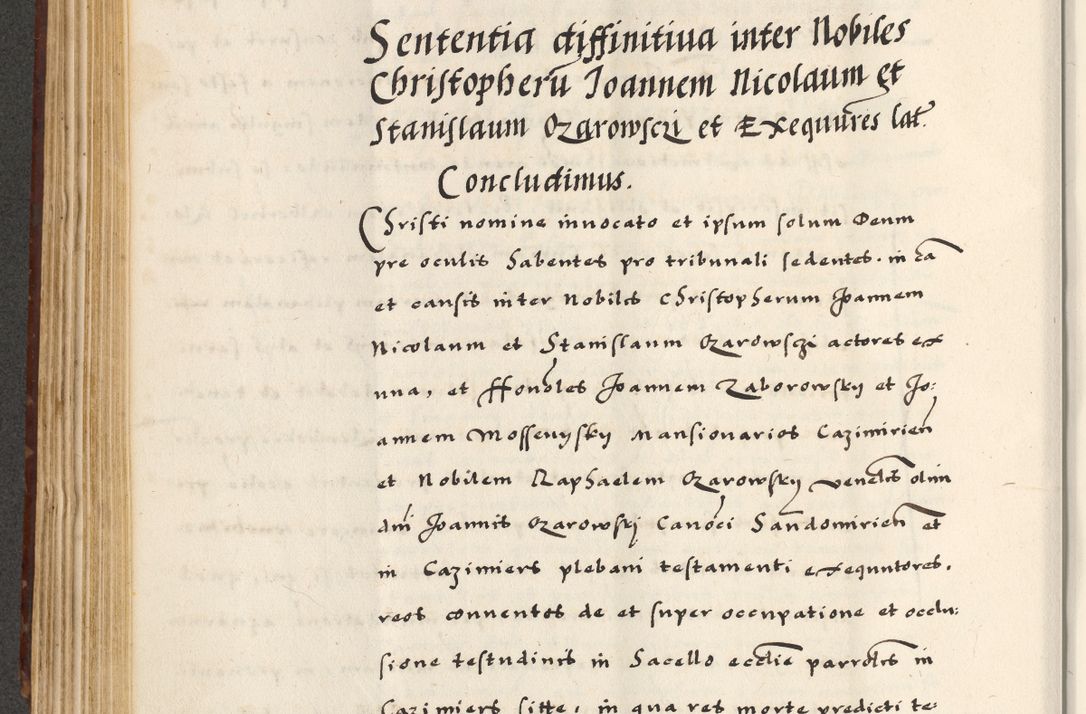 Sententia diffinitiua inter Nobiles
Christopherū Ioannem Nicolaum et
Stanislaum Ozarowsczi et Exequūres lat.
Concludimus.
Christi nomine inuocato et ipsum solum Deum
pre oculis habentes pro tribunali sedentes. in cā
et causis inter Nobiles Christopherum Joannem
Nicolaum et Stanislaum Ozarowsczi actores ex
una, et ffonbles Joannem Zaborowsky et Jo:
annem Mossenysky Mansionarios Cazimirień
et Nobilem Raphaelem Ozarowsky venēles olim
dni Joannis Ozarowskj Canoci Sandomirień et
in Cazimiers plebani testamenti exequutores.
reos conuentos de et super occupatione et occlu:
sione testudinis in Sacello ecclīe parrolis in
Cazimiers sitte, in qua res morte predicti te: